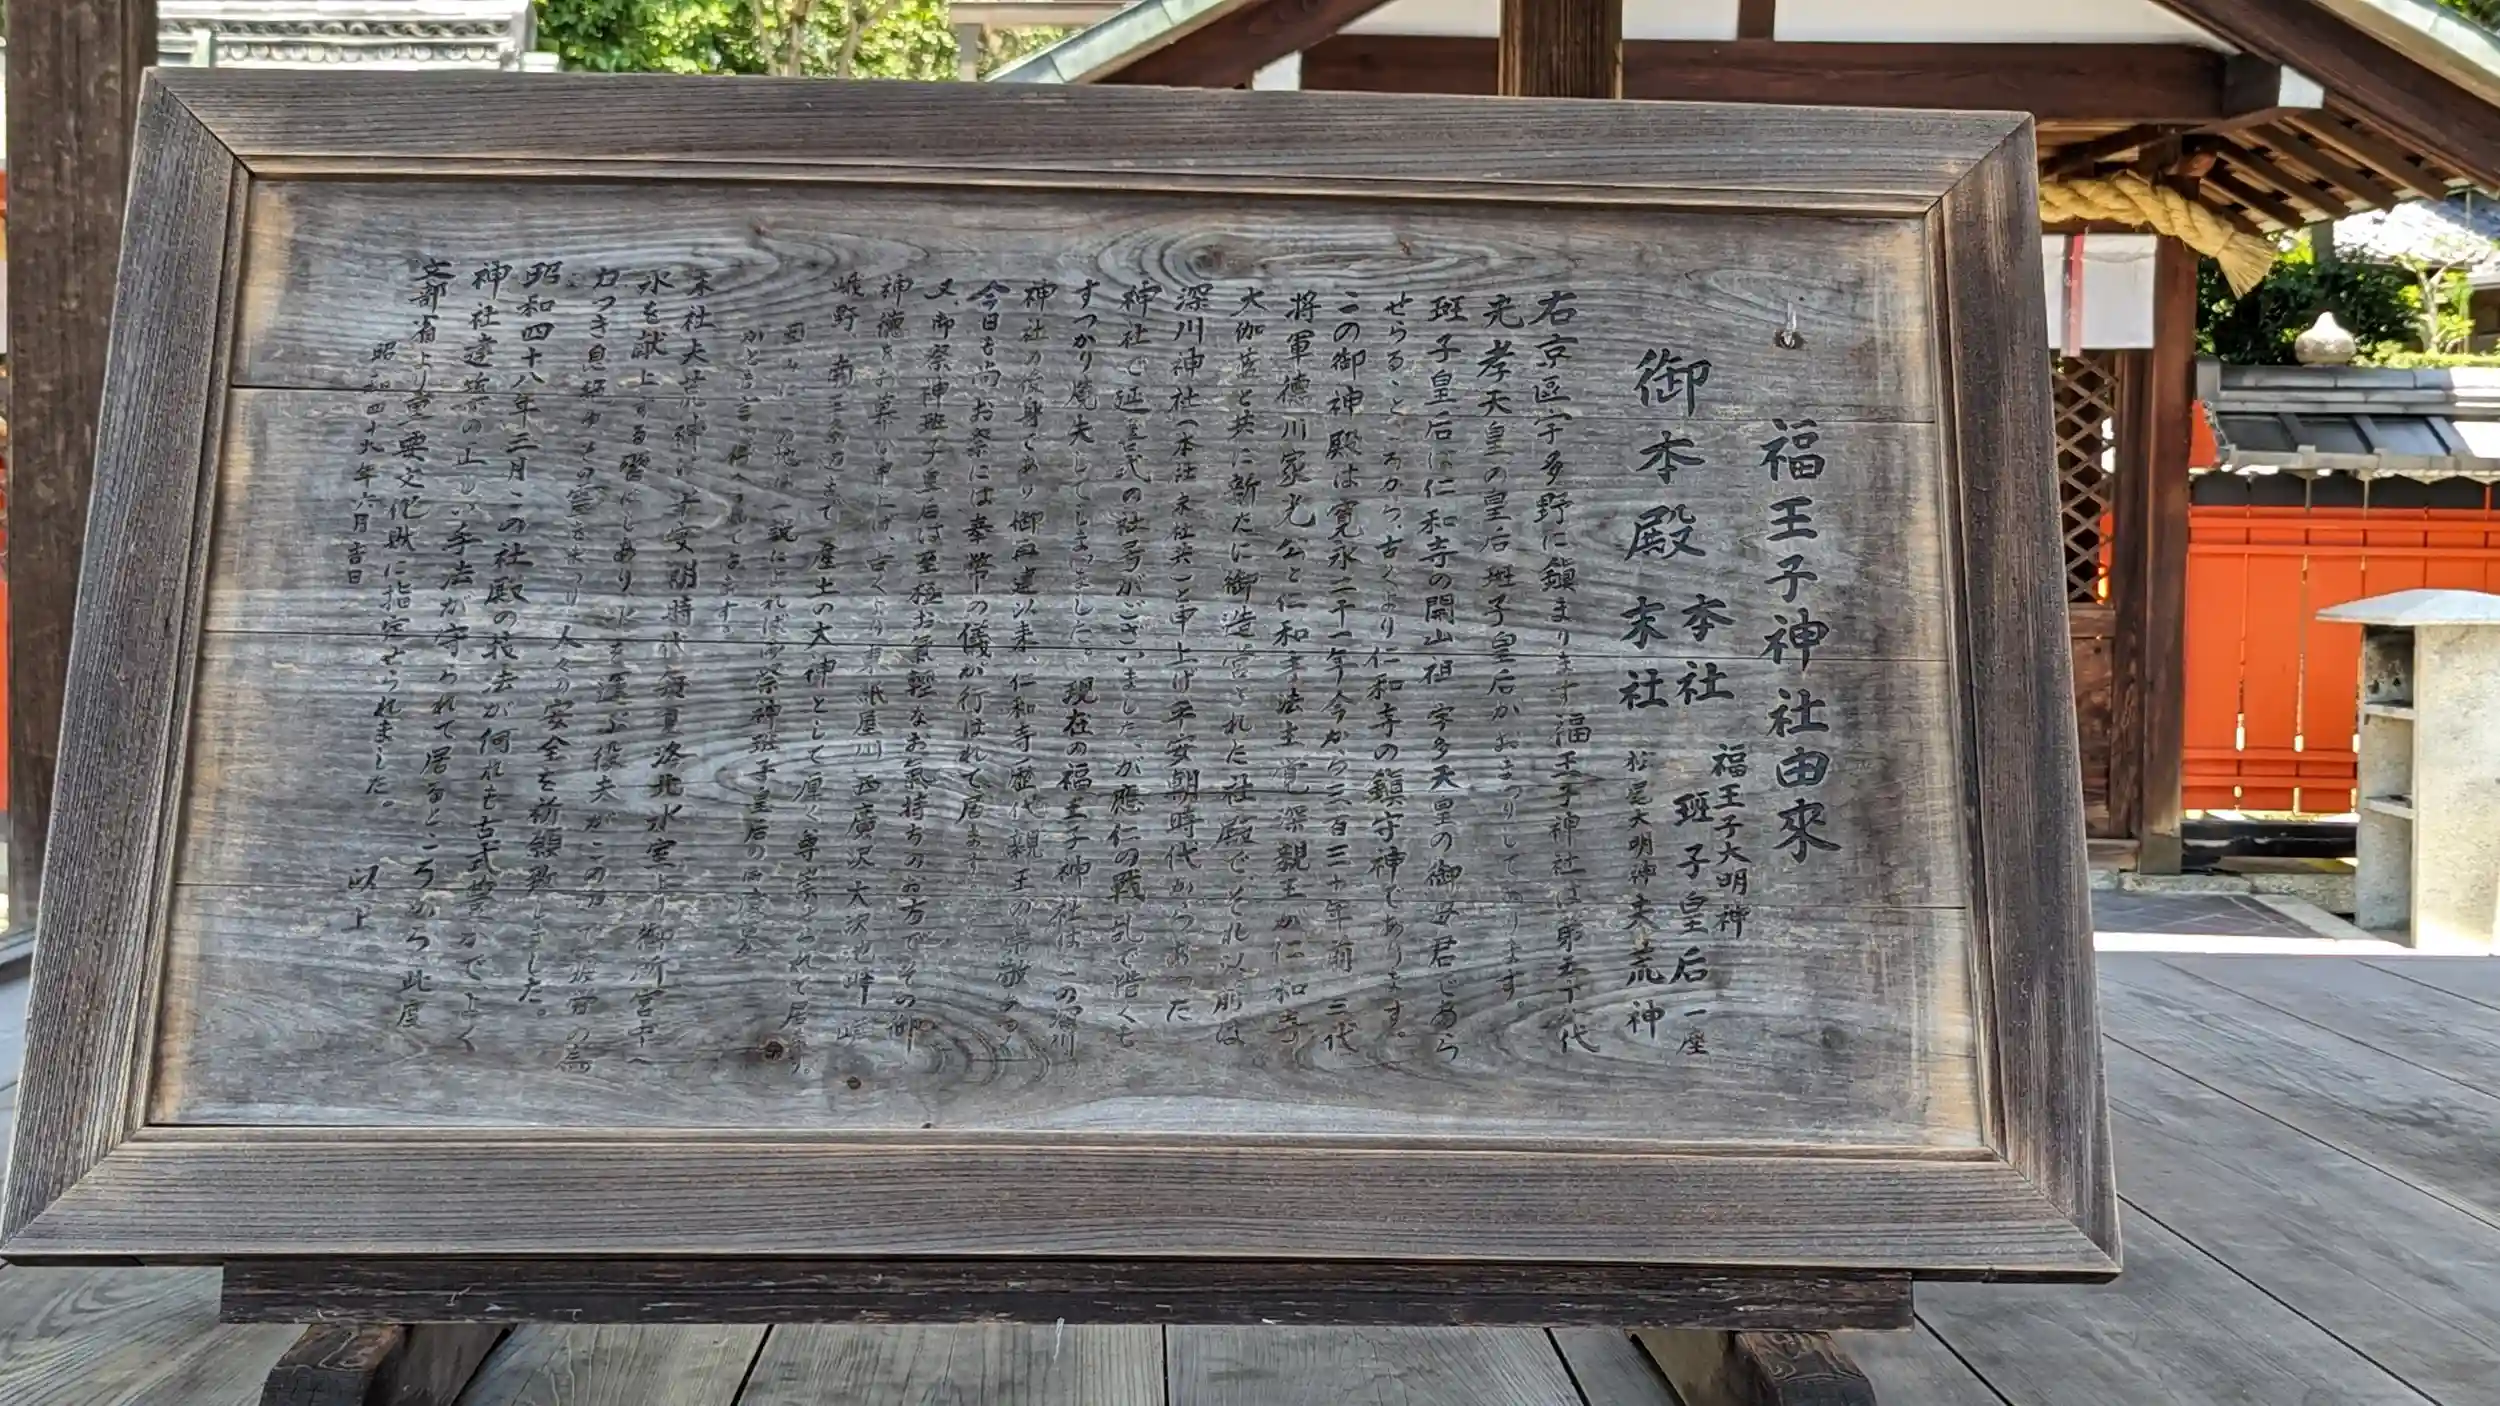 福王子神社由來
御本殿
本社 福王子大明神 班子皇后 一座
末社 松尾大明神 夫荒神
右京區宇多野に鎭まります福王子神社は第五十八代
光孝天皇の皇后班子皇后がおまつりしてあります。
班子皇后は仁和寺の開山祖 宇多天皇の御母君であら
せらるゝところから、古くより仁和寺の鎭守神であります。
この御神殿は寛永二十一年今から三百三十年前 三代
将軍德川家光公と仁和寺法主覚深親王が仁和寺
大伽藍と共に新たに御造営された社殿で、それ以前は
深川神社(本社末社共)と申上げ平安朝時代からあった
神社で延喜式の社号がございましたが應仁の戦乱で惜くも
すつかり焼失してしまいました。現在の福王子神社は一の深川
神社の後身であり御再建以来、仁和寺歴代親王の崇敬あつく
今日も尚お祭には奉幣の儀が行はれて居ます。
又、御祭神班子皇后は至極お氣輕なお氣持ちのお方でその御
神德をお慕い申上げ、古くより東紙屋川 西廣沢大沢池畔 嵯
峨野 南三条辺まで 産土の大神として厚く尊崇られて居ます。
因みにこの地は一説によれば御祭神班子皇后の
かとも言い傳へられて居ます。
末社夫荒神は平安朝時代毎夏洛北氷室より御所宮中へ
氷を献上する習にしあり、氷を運ぶ役夫がこの力で疲労の為
力つき息絶ゆその霊をまつり人々の安全を祈願致しました。
昭和四十八年三月この社殿の技法が何れも古式豊かでよく
神社建築の正しい手法が守られて居るところから此度
文部省より重要文化財に指定せられました。
昭和四十九年六月吉日 以上